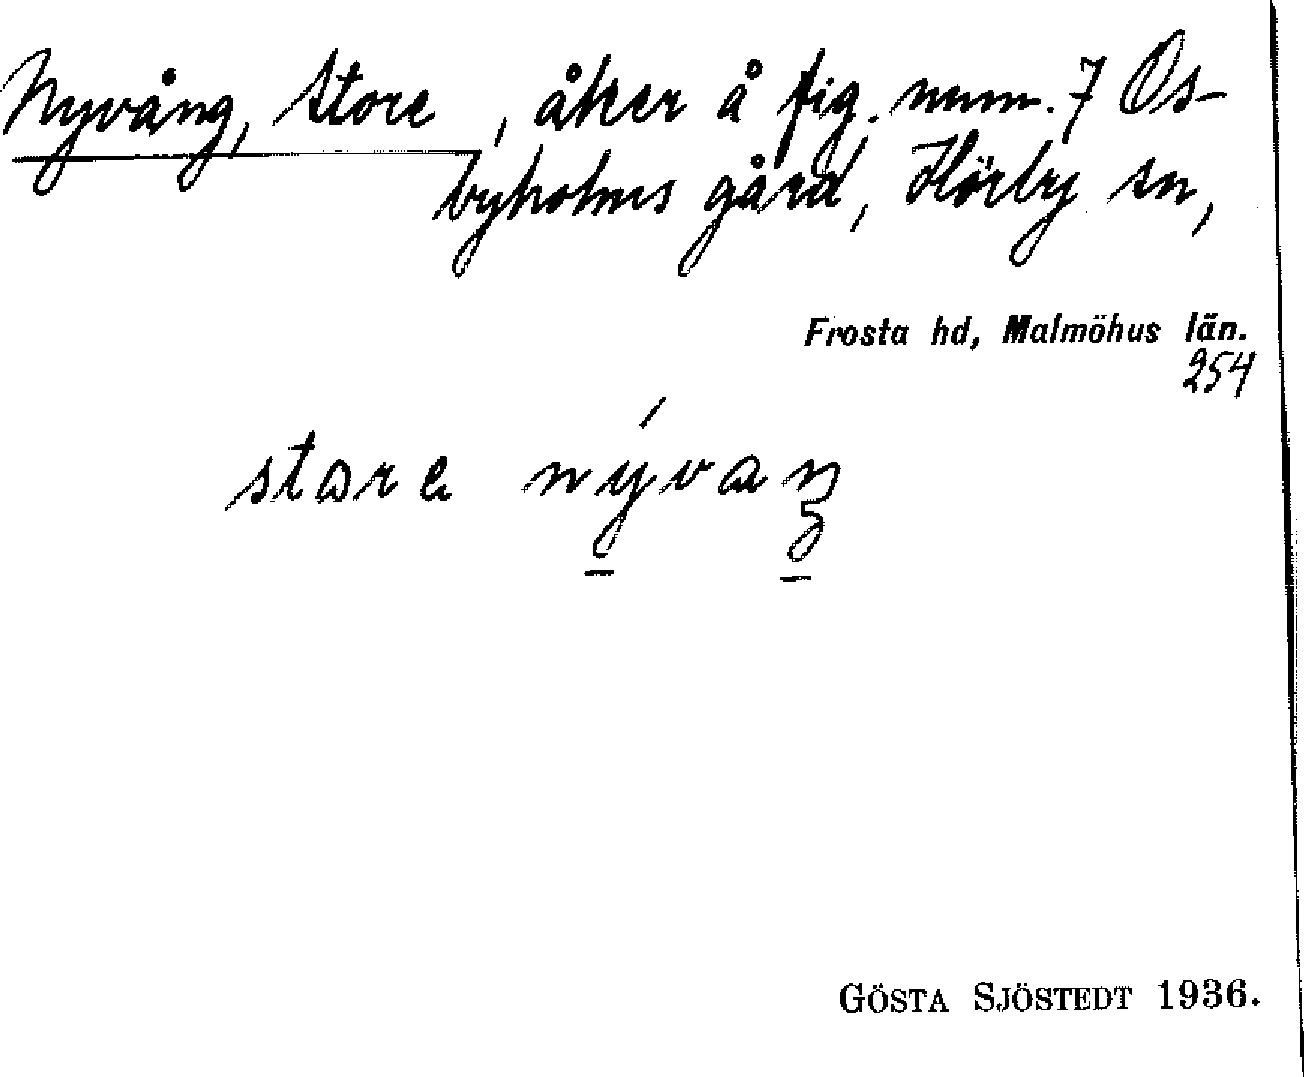 Nyvång, Store, åker å fig. num. 7 Os-
byholms gård, Hörby sn,
Frosta hd, Malmöhus län.
254
store nývaŋ
GÖSTA SJÖSTEDT 1936.